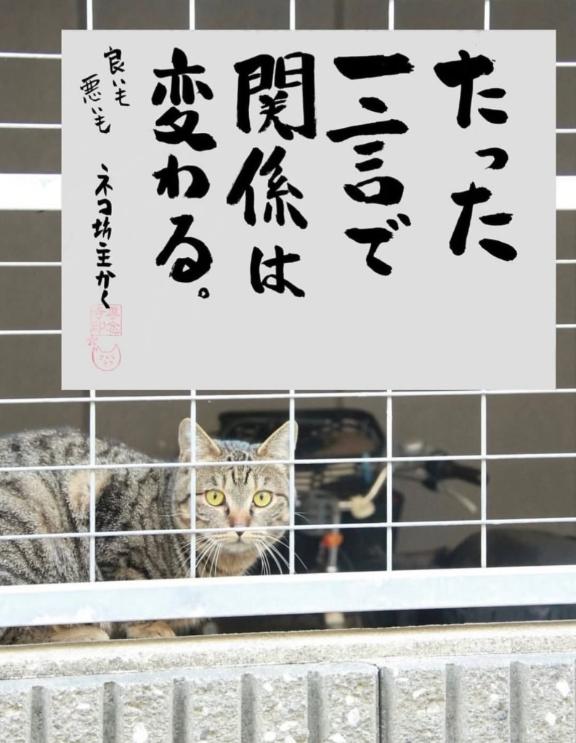 たった
一言で
関係は
変わる。
良いも
悪いも
ネコ坊主かく
専念
寺印